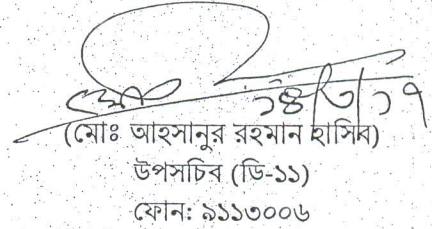 (মোঃ আহসানুর রহমান হাসিব)
উপসচিব (ডি-১১)
ফোন: ৯১১৩০০৬